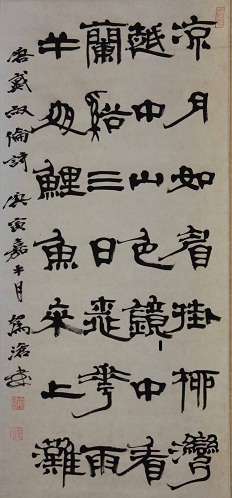 凉月如眉掛柳灣
越中山色鏡中看
蘭谿三日桃花雨
半夜鯉魚來上灘
唐戴叔倫詩 庚寅嘉平月